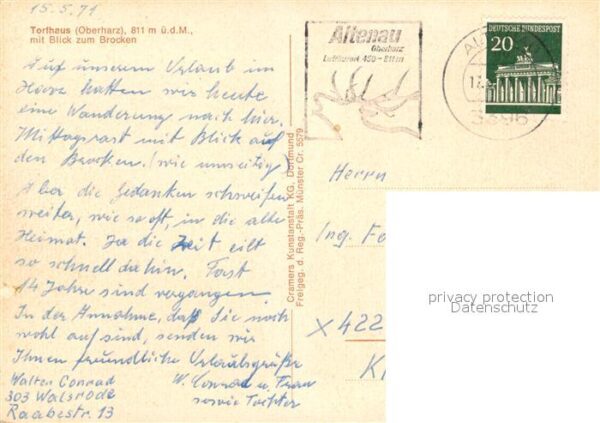 15.5.71
Torfhaus (Oberharz), 811 m ü.d.M.,
mit Blick zum Brocken
Auf unserem Urlaub im
Harz hatten wir heute
eine Wanderung nach hier.
Mittagsrast mit Blick auf
den Brocken. (wie umseitig)
Aber die Gedanken schweifen
weiter, wie so oft, in die alte
Heimat. Ja die Zeit eilt
so schnell dahin. Fast
14 Jahre sind vergangen.
In der Annahme, daß Sie noch
wohl auf sind, senden wir
Ihnen freundliche Urlaubsgrüße
W. Conrad u. Frau
sowie Tochter
Walter Conrad
303 Walsrode
Raabestr. 13
Cramers Kunstanstalt KG, Dortmund
Freigeg. d. Reg.-Präs. Münster Cr. 5579
Altenau
Oberharz
Luftkurort 450-811m
DEUTSCHE BUNDESPOST
20
3396
Herrn
Ing.
X 422
privacy protection
Datenschutz